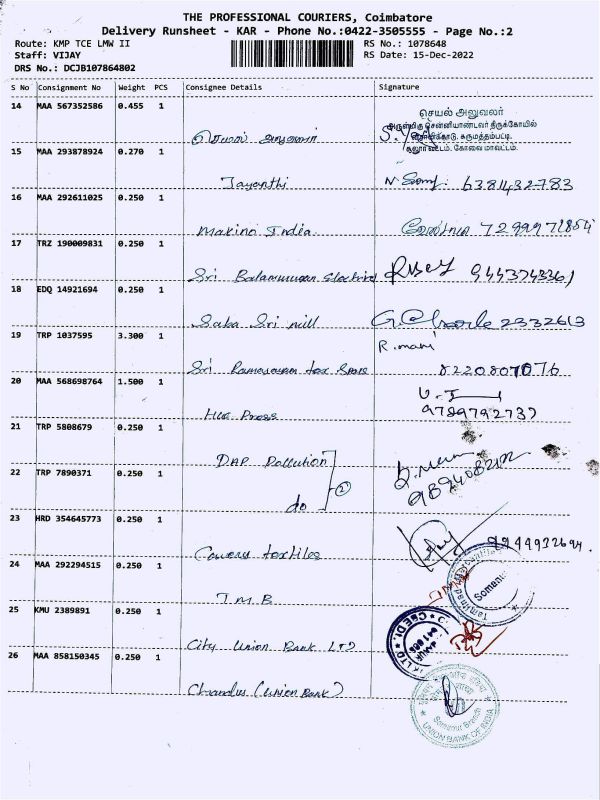 THE PROFESSIONAL COURIERS, Coimbatore
Delivery Runsheet - KAR - Phone No.:0422-3505555 - Page No.:2
Route: KMP TCE LMW II
RS No.: 1078648
Staff: VIJAY
RS Date: 15-Dec-2022
DRS No.: DCJB107864802
S No Consignment No Weight PCS Consignee Details Signature
14 MAA 567352586 0.455 1
செயல் அலுவலர்
அருள்மிகு சென்னியாண்டவர் திருக்கோயில்
கருமத்தம்பட்டி.
சூலூர் வட்டம். கோவை மாவட்டம்.
செயல் அலுவலர்
15 MAA 293878924 0.270 1
Jayanthi 6381432783
16 MAA 292611025 0.250 1
Makino India
17 TRZ 190009831 0.250 1
Sri Balamurugan
18 EDQ 14921694 0.250 1
Saba Sri mill 2332613
19 TRP 1037595 3.300 1
R. mani
Sri 8220807076
20 MAA 568698764 1.500 1
Press 9789792737
21 TRP 5808679 0.250 1
DAP Pollution
22 TRP 7890371 0.250 1
②
do
23 HRD 354645773 0.250 1
Cauvery textiles
24 MAA 292294515 0.250 1
T.M.B
Somanur
25 KMU 2389891 0.250 1
City Union Bank LTD
26 MAA 858150345 0.250 1
Chandru (Union Bank)
Somanur Branch
UNION BANK OF INDIA